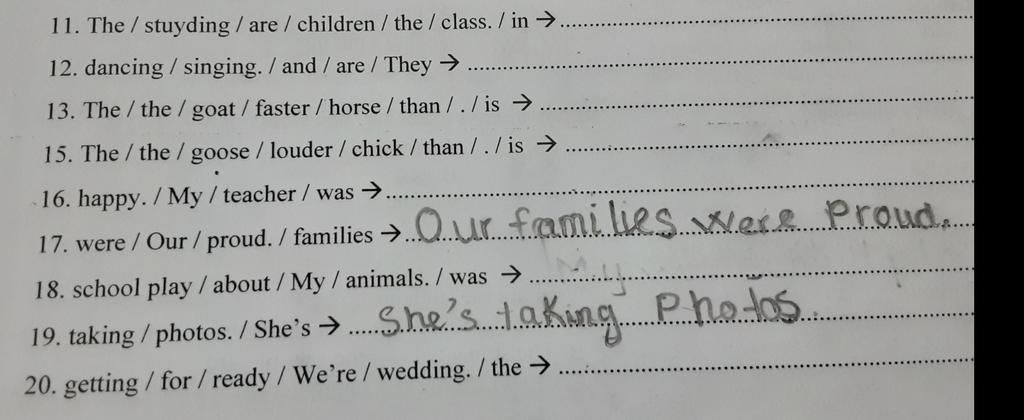 11. The / stuyding / are / children / the / class. / in → ................
12. dancing / singing. / and / are / They → ................
13. The / the / goat / faster / horse / than / . / is → ................
15. The / the / goose / louder / chick / than / . / is → ................
16. happy. / My / teacher / was → ................
17. were / Our / proud. / families → Our families were Proud.
18. school play / about / My / animals. / was → My
19. taking / photos. / She's → She's taking Photos.
20. getting / for / ready / We're / wedding. / the → ................